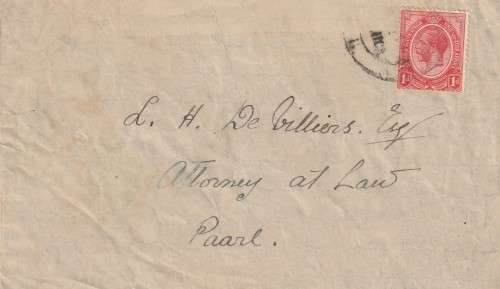 1d 1d
L. H. De Villiers. Esq
Attorney at Law
Paarl.